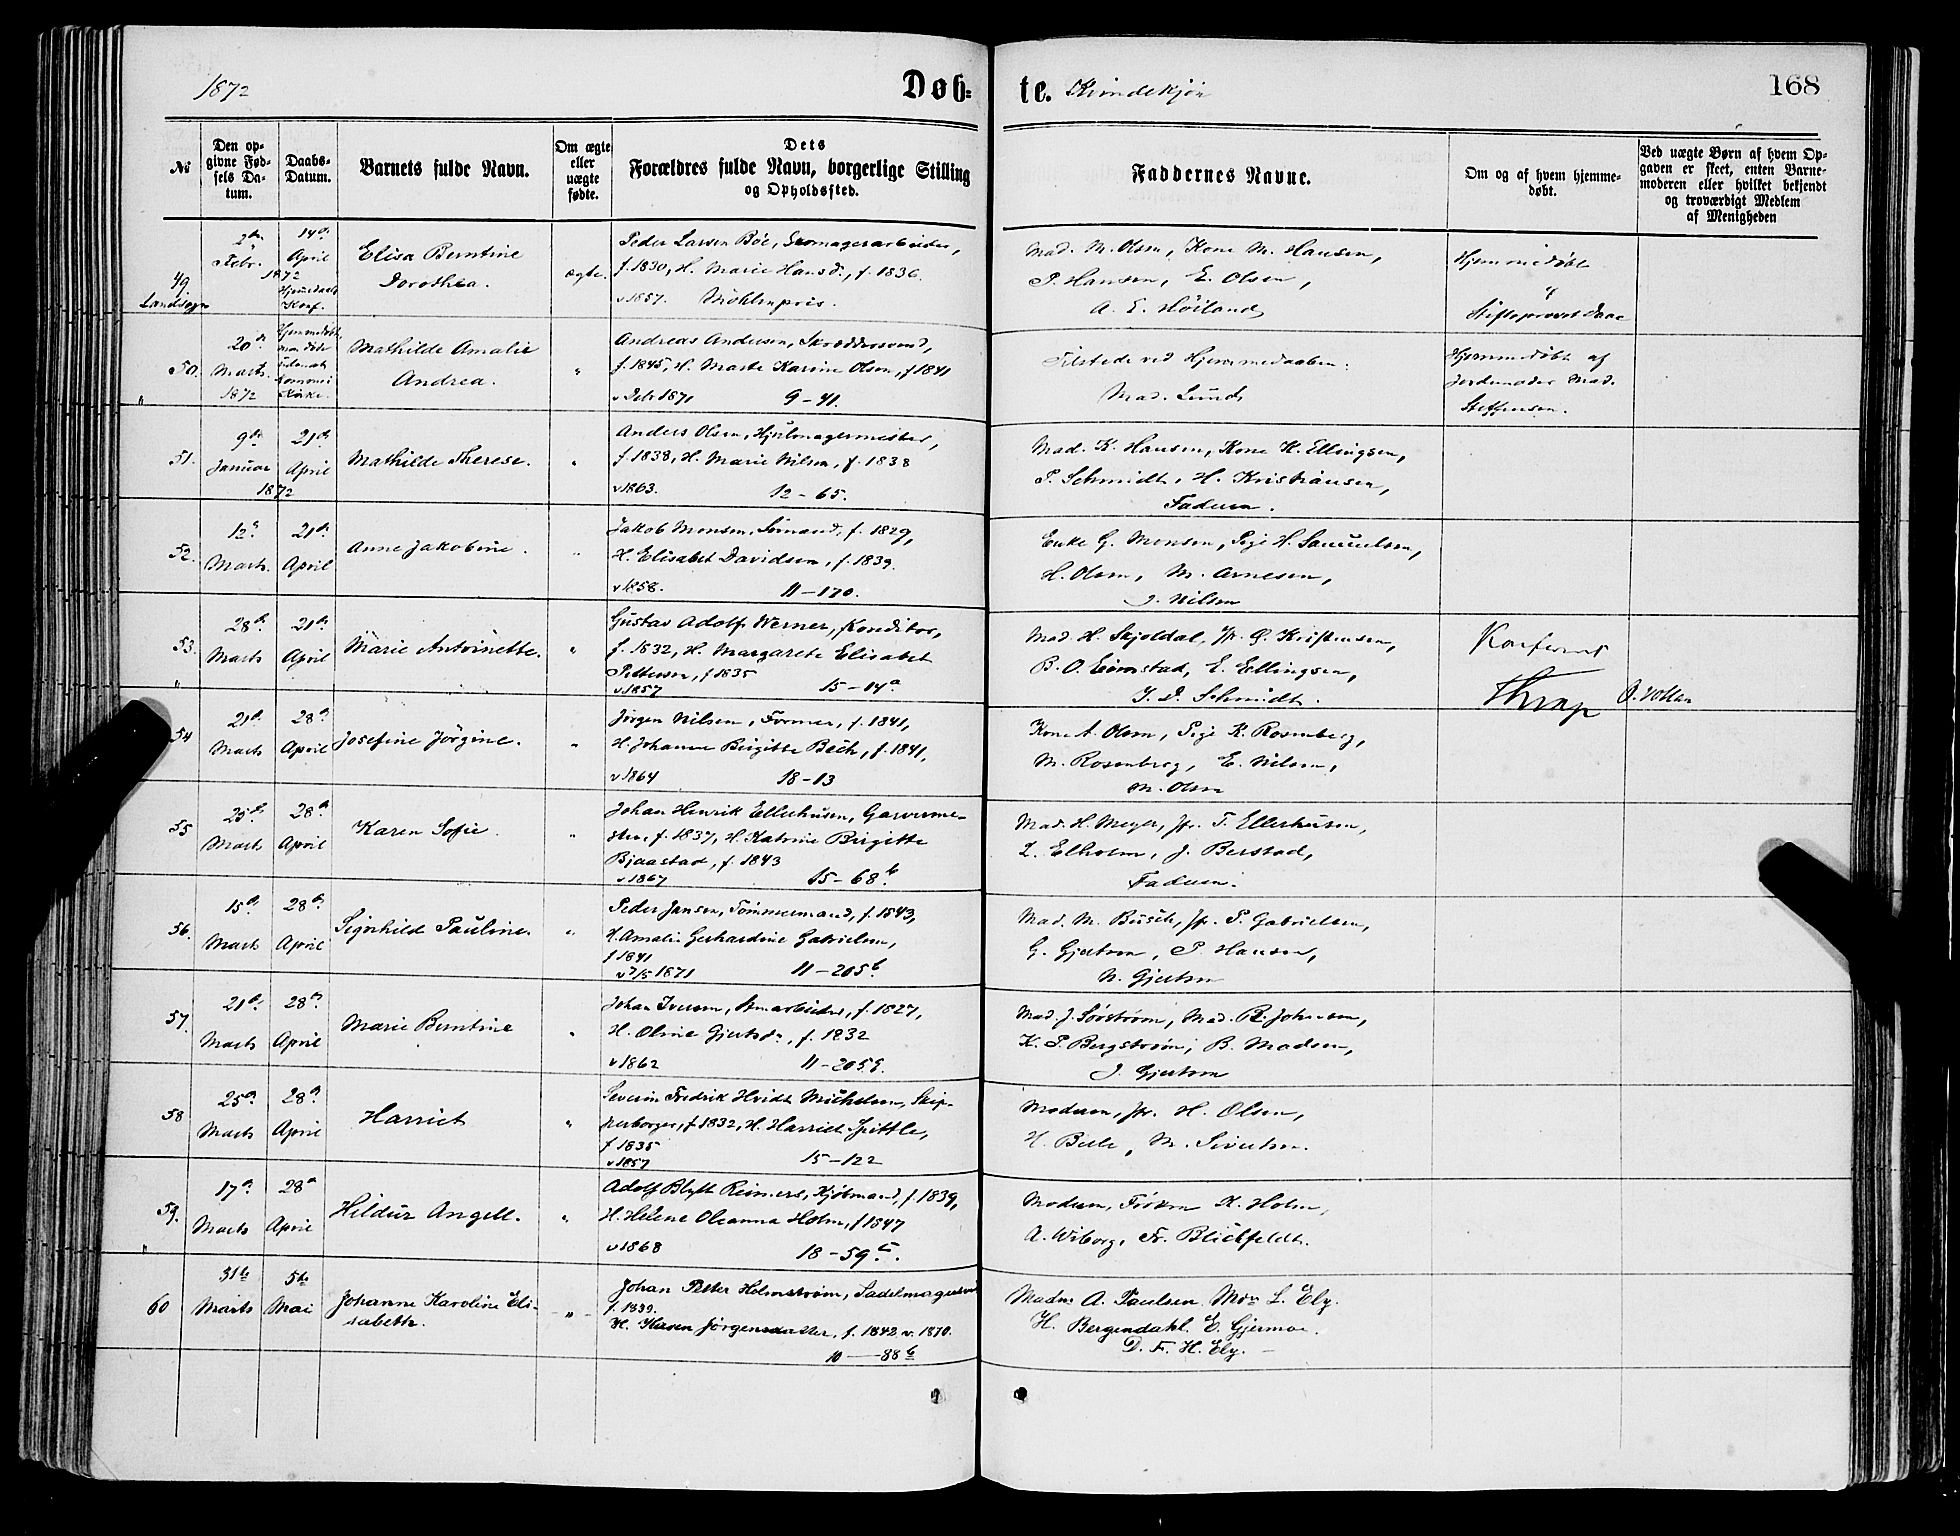 1872
Døb= te. Kvindekjøn
168
No
Den op-
givne Fød-
sels Da-
tum.
Daabs-
Datum.
Barnets fulde Navn.
Om ægte
eller
uægte
fødte.
Dets
Forældres fulde Navn, borgerlige Stilling
og Opholdssted.
Faddernes Navne.
Om og af hvem hjemme-
døbt.
Ved uægte Børn af hvem Op-
gaven er skeet, enten Barne-
moderen eller hvilket bekjendt
og troværdigt Medlem
af Menigheden
49.
Landsogn
2den Febr. 1872
14de April
Hjemmedaab Konf.
Elisa Berntine
Dorothea.
ægte.
Peder Larsen Böe, Skomagerarbeider,
f. 1830, H. Marie Hansd., f. 1836.
v 1857. Möhlenpris.
Mad. M. Olsen, Kone M. Hansen,
P. Hansen, E. Olsen,
A. E. Höiland,
Hjemmedöbt
af
Stiftsprovst Daae
50.
"
20de
Marts
1872
Hjemmedöbt,
Kirke.
Mathilde Amalie
Andrea.
"
Andreas Andersen, Skræddersvend,
f. 1845, H. Marte Karine Olsen, f 1841
v Debr 1871 9-41.
Tilstede ved Hjemmedaaben:
Mad. Lund,
Hjemmedöbt af
Jordemoder Mad.
Steffensen.
51.
9de
Januar
1872
21de
April
Mathilde Therese.
"
Anders Olsen, Hjulmagermester,
f. 1838, H. Marie Nilsen, f. 1838
v 1863. 12-65.
Mad. K. Hansen, Kone K. Ellingsen,
P. Schmidt, H. Kristiansen,
Faderen.
52.
12te
Marts.
21de
April
Anne Jakobine.
"
Jakob Monsen, Sömand, f. 1829,
H. Elisabet Davidsen, f. 1839.
v 1858. 11-170.
Enke G. Monsen, Pige H. Samuelsen,
H. Olsen, M. Arnesen,
J. Nilsen
53.
"
28de
Marts
21de
April
Marie Antoinette.
"
Gustav Adolf Werner, Konditor,
f. 1832, H. Margarete Elisabet
Pettersen, f 1835
v 1857 15-14a
Mad. H. Skjoldal, Jfr. G. Kristensen,
B. O. Eimstad, E. Ellingsen,
J. D. Schmidt.
Konfereret
Thrap
O. Vollan
54
21de
Marts
28de
April
Josefine Jörgine.
"
Jörgen Nilsen, Former, f. 1841,
H. Johanne Birgitte Bech, f. 1841,
v 1864 18-13
Kone A. Olsen, Pige K. Rosenberg,
M. Rosenberg, E. Nilsen,
M. Olsen
55
25de
Marts
28de
April
Karen Sofie.
"
Johan Henrik Ellerhusen, Garverme-
ster, f. 1837, H. Katrine Birgitte
Bjaastad, f. 1843
v 1867 15-68b.
Mad. H. Meyer, Jfr. T. Ellerhusen,
L. Elholm, J. Berstad,
Faderen.
56.
15de
Marts
28de
April
Signhild Pauline.
"
Peder Jansen, Tömmermand, f. 1843,
H. Amalie Gerhardine Gabrielsen,
f 1841
v 7/5 1871 11-205b.
Mad. M. Busch, Jfr. P. Gabrielsen,
G. Gjertsen, P. Hansen,
N. Gjertsen
57.
21de
Marts
28de
April
Marie Berntine
"
Johan Iversen, f. 1827,
H. Oline Gjertsdr, f. 1832
v 1862 11-205g.
Mad. J. Sörström, Mad. R. Johnsen,
K. P. Bergström, B. Madsen,
J. Gjertsen
58
25de
Marts
28de
April
Harriet
"
Severin Fredrik Hvidt Mickelsen, Skip-
perborger, f 1832, H. Harriet Spittle,
f 1835
v 1857 15-122
Moderen, Jfr. H. Olsen,
H. Beck, M. Sivertsen.
59.
"
17de
Marts
28de
April
Hildur Angell.
"
Adolf Blytt Reimers, Kjöbmand, f. 1839,
H. Helene Oleanna Holm, f 1847
v 1868 18-59c.
Moderen, Fröken K. Holm,
A. Wiborg, Fr. Blichfeldt.
60
31te
Marts
5te
Mai
Johanne Karoline Eli-
sabeth.
"
Johan Petter Holmström, Sadelmagersvend
f. 1839.
H. Karen Jörgensdatter, f. 1842 v. 1870.
10-88b
Madm A. Paulsen. Mdm L. Ely.
H. Bergendahl. E. Gjermoe.
D. F. H. Ely.